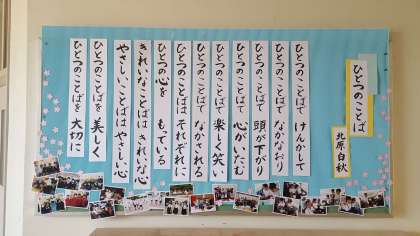 ひとつのことば
北原白秋
ひとつのことばで けんかして
ひとつのことばで なかなおり
ひとつのことばで 頭が下がり
ひとつのことばで 心がいたむ
ひとつのことばで 楽しく笑い
ひとつのことばで なかされる
ひとつのことばは それぞれに
ひとつの心を もっている
きれいなことばは きれいな心
やさしいことばは やさしい心
ひとつのことばを 大切に
ひとつのことばを 美しく